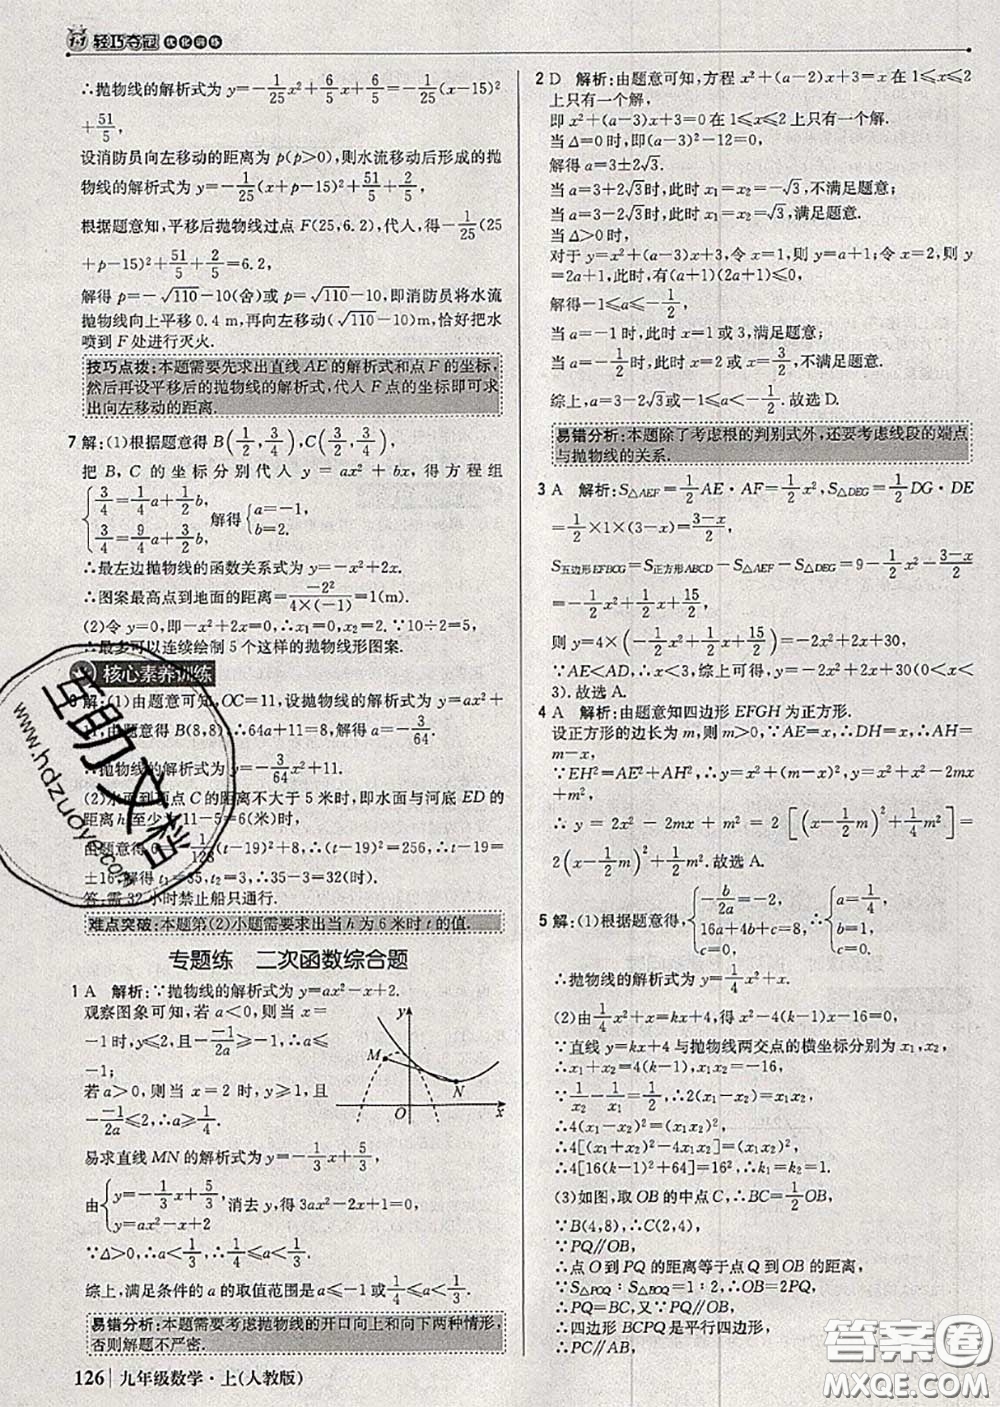 1+1 轻巧夺冠 优化训练
∴抛物线的解析式为 y=-1/25x²+6/5x+51/5=-1/25(x-15)²
+51/5,
设消防员向左移动的距离为 p(p>0),则水流移动后形成的抛
物线的解析式为 y=-1/25(x+p-15)²+51/5+2/5,
根据题意知,平移后抛物线过点 F(25,6.2),代人,得-1/25(25
+p-15)²+51/5+2/5=6.2,
解得 p=-√110-10(舍)或 p=√110-10,即消防员将水流
抛物线向上平移0.4 m,再向左移动(√110-10)m,恰好把水
喷到 F 处进行灭火.
技巧点拨:本题需要先求出直线 AE 的解析式和点 F 的坐标,
然后再设平移后的抛物线的解析式,代人 F 点的坐标即可求
出向左移动的距离.
7 解:(1)根据题意得 B(1/2,3/4),C(3/2,3/4),
把 B,C 的坐标分别代人 y=ax²+bx,得方程组
{3/4=1/4a+1/2b,
3/4=9/4a+3/2b, 解得{a=-1,
b=2.
∴最左边抛物线的函数关系式为 y=-x²+2x.
∴图案最高点到地面的距离=-2²/4×(-1)=1(m).
(2)令 y=0,即-x²+2x=0,∴x₁=0,x₂=2.∵10÷2=5,
∴最多可以连续绘制5个这样的抛物线形图案.
核心素养训练
解:(1)由题意可知,OC=11,设抛物线的解析式为 y=ax²+
11,由题意得 B(8,8),∴64a+11=8,解得 a=-3/64.
∴抛物线的解析式为 y=-3/64x²+11.
(2)水面到顶点 C 的距离不大于5米时,即水面与河底 ED 的
距离 h 至少为11-5=6(米)时,
由题意得6=-1/128(t-19)²+8,∴(t-19)²=256,∴t-19=
±16,解得 t₁=35,t₂=3,∴35-3=32(时).
答:需32小时禁止船只通行.
难点突破:本题第(2)小题需要求出当 h 为6米时 t 的值.
专题练 二次函数综合题
1 A 解析:∵抛物线的解析式为 y=ax²-x+2.
观察图象可知,若 a<0,则当 x=
-1时,y≤2,且-(-1)/2a≥-1,∴a≤
-1;
若 a>0,则当 x=2时,y≥1,且
-(-1)/2a≤2,∴a≥1/4.
y M N O x
易求直线 MN 的解析式为 y=-1/3x+5/3,
由{y=-1/3x+5/3,
y=ax²-x+2 消去 y,得3ax²-2x+1=0,
∵Δ>0,∴a<1/3,∴1/4≤a<1/3.
综上,满足条件的 a 的取值范围是 a≤-1或1/4≤a<1/3.
易错分析:本题需要考虑抛物线的开口向上和向下两种情形,
否则解题不严密.
126 九年级数学·上(人教版)
2 D 解析:由题意可知,方程 x²+(a-2)x+3=x 在1≤x≤2
上只有一个解,
即 x²+(a-3)x+3=0在1≤x≤2上只有一个解.
当 Δ=0时,即(a-3)²-12=0,
解得 a=3±2√3.
当 a=3+2√3时,此时 x₁=x₂=-√3,不满足题意;
当 a=3-2√3时,此时 x₁=x₂=√3,满足题意.
当 Δ>0时,
对于 y=x²+(a-3)x+3,令 x=1,则 y=a+1;令 x=2,则 y=
2a+1,此时,有(a+1)(2a+1)≤0,
解得-1≤a≤-1/2,
当 a=-1时,此时 x=1或3,满足题意;
当 a=-1/2时,此时 x=2或 x=3/2,不满足题意.
综上,a=3-2√3或-1≤a<-1/2.故选 D.
易错分析:本题除了考虑根的判别式外,还要考虑线段的端点
与抛物线的关系.
3 A 解析:S△AEF=1/2AE·AF=1/2x²,S△DEG=1/2DG·DE
=1/2×1×(3-x)=(3-x)/2,
S五边形EFBCG=S正方形ABCD-S△AEF-S△DEG=9-1/2x²-(3-x)/2
=-1/2x²+1/2x+15/2,
则 y=4×(-1/2x²+1/2x+15/2)=-2x²+2x+30,
∵AE<AD,∴x<3,综上可得,y=-2x²+2x+30(0<x<
3).故选 A.
4 A 解析:由题意知四边形 EFGH 为正方形.
设正方形的边长为 m,则 m>0,∵AE=x,∴DH=x,∴AH=
m-x,
∵EH²=AE²+AH²,∴y=x²+(m-x)²,y=x²+x²-2mx
+m²,
∴y=2x²-2mx+m²=2[(x-1/2m)²+1/4m²]=
2(x-1/2m)²+1/2m².故选 A.
5 解:(1)根据题意得,{-b/2a=-2,
16a+4b+c=8,
c=4, ∴{a=1/4,
b=1,
c=4,
∴抛物线的解析式为 y=1/4x²+x+4.
(2)由1/4x²+x+4=kx+4,得 x²-4(k-1)x-16=0,
∵直线 y=kx+4与抛物线两交点的横坐标分别为 x₁,x₂,
∴x₁+x₂=4(k-1),x₁x₂=-16,
∵1/x₂-1/x₁=1/2,∴2(x₁-x₂)=x₁x₂,
∴4(x₁-x₂)²=(x₁x₂)²,
∴4[(x₁+x₂)²-4x₁x₂]=(x₁x₂)²,
∴4[16(k-1)²+64]=16²,∴k₁=k₂=1.
(3)如图,取 OB 的中点 C,∴BC=1/2OB,
∵B(4,8),∴C(2,4),
∵PQ∥OB,
∴点 O 到 PQ 的距离等于点 Q 到 OB 的距离,
∵S△POQ:S△BOQ=1:2,∴OB=2PQ,
∴PQ=BC,又∵PQ∥OB,
∴四边形 BCPQ 是平行四边形,
互助文档
www.hdzuoye.com
答案圈
MXQE.COM